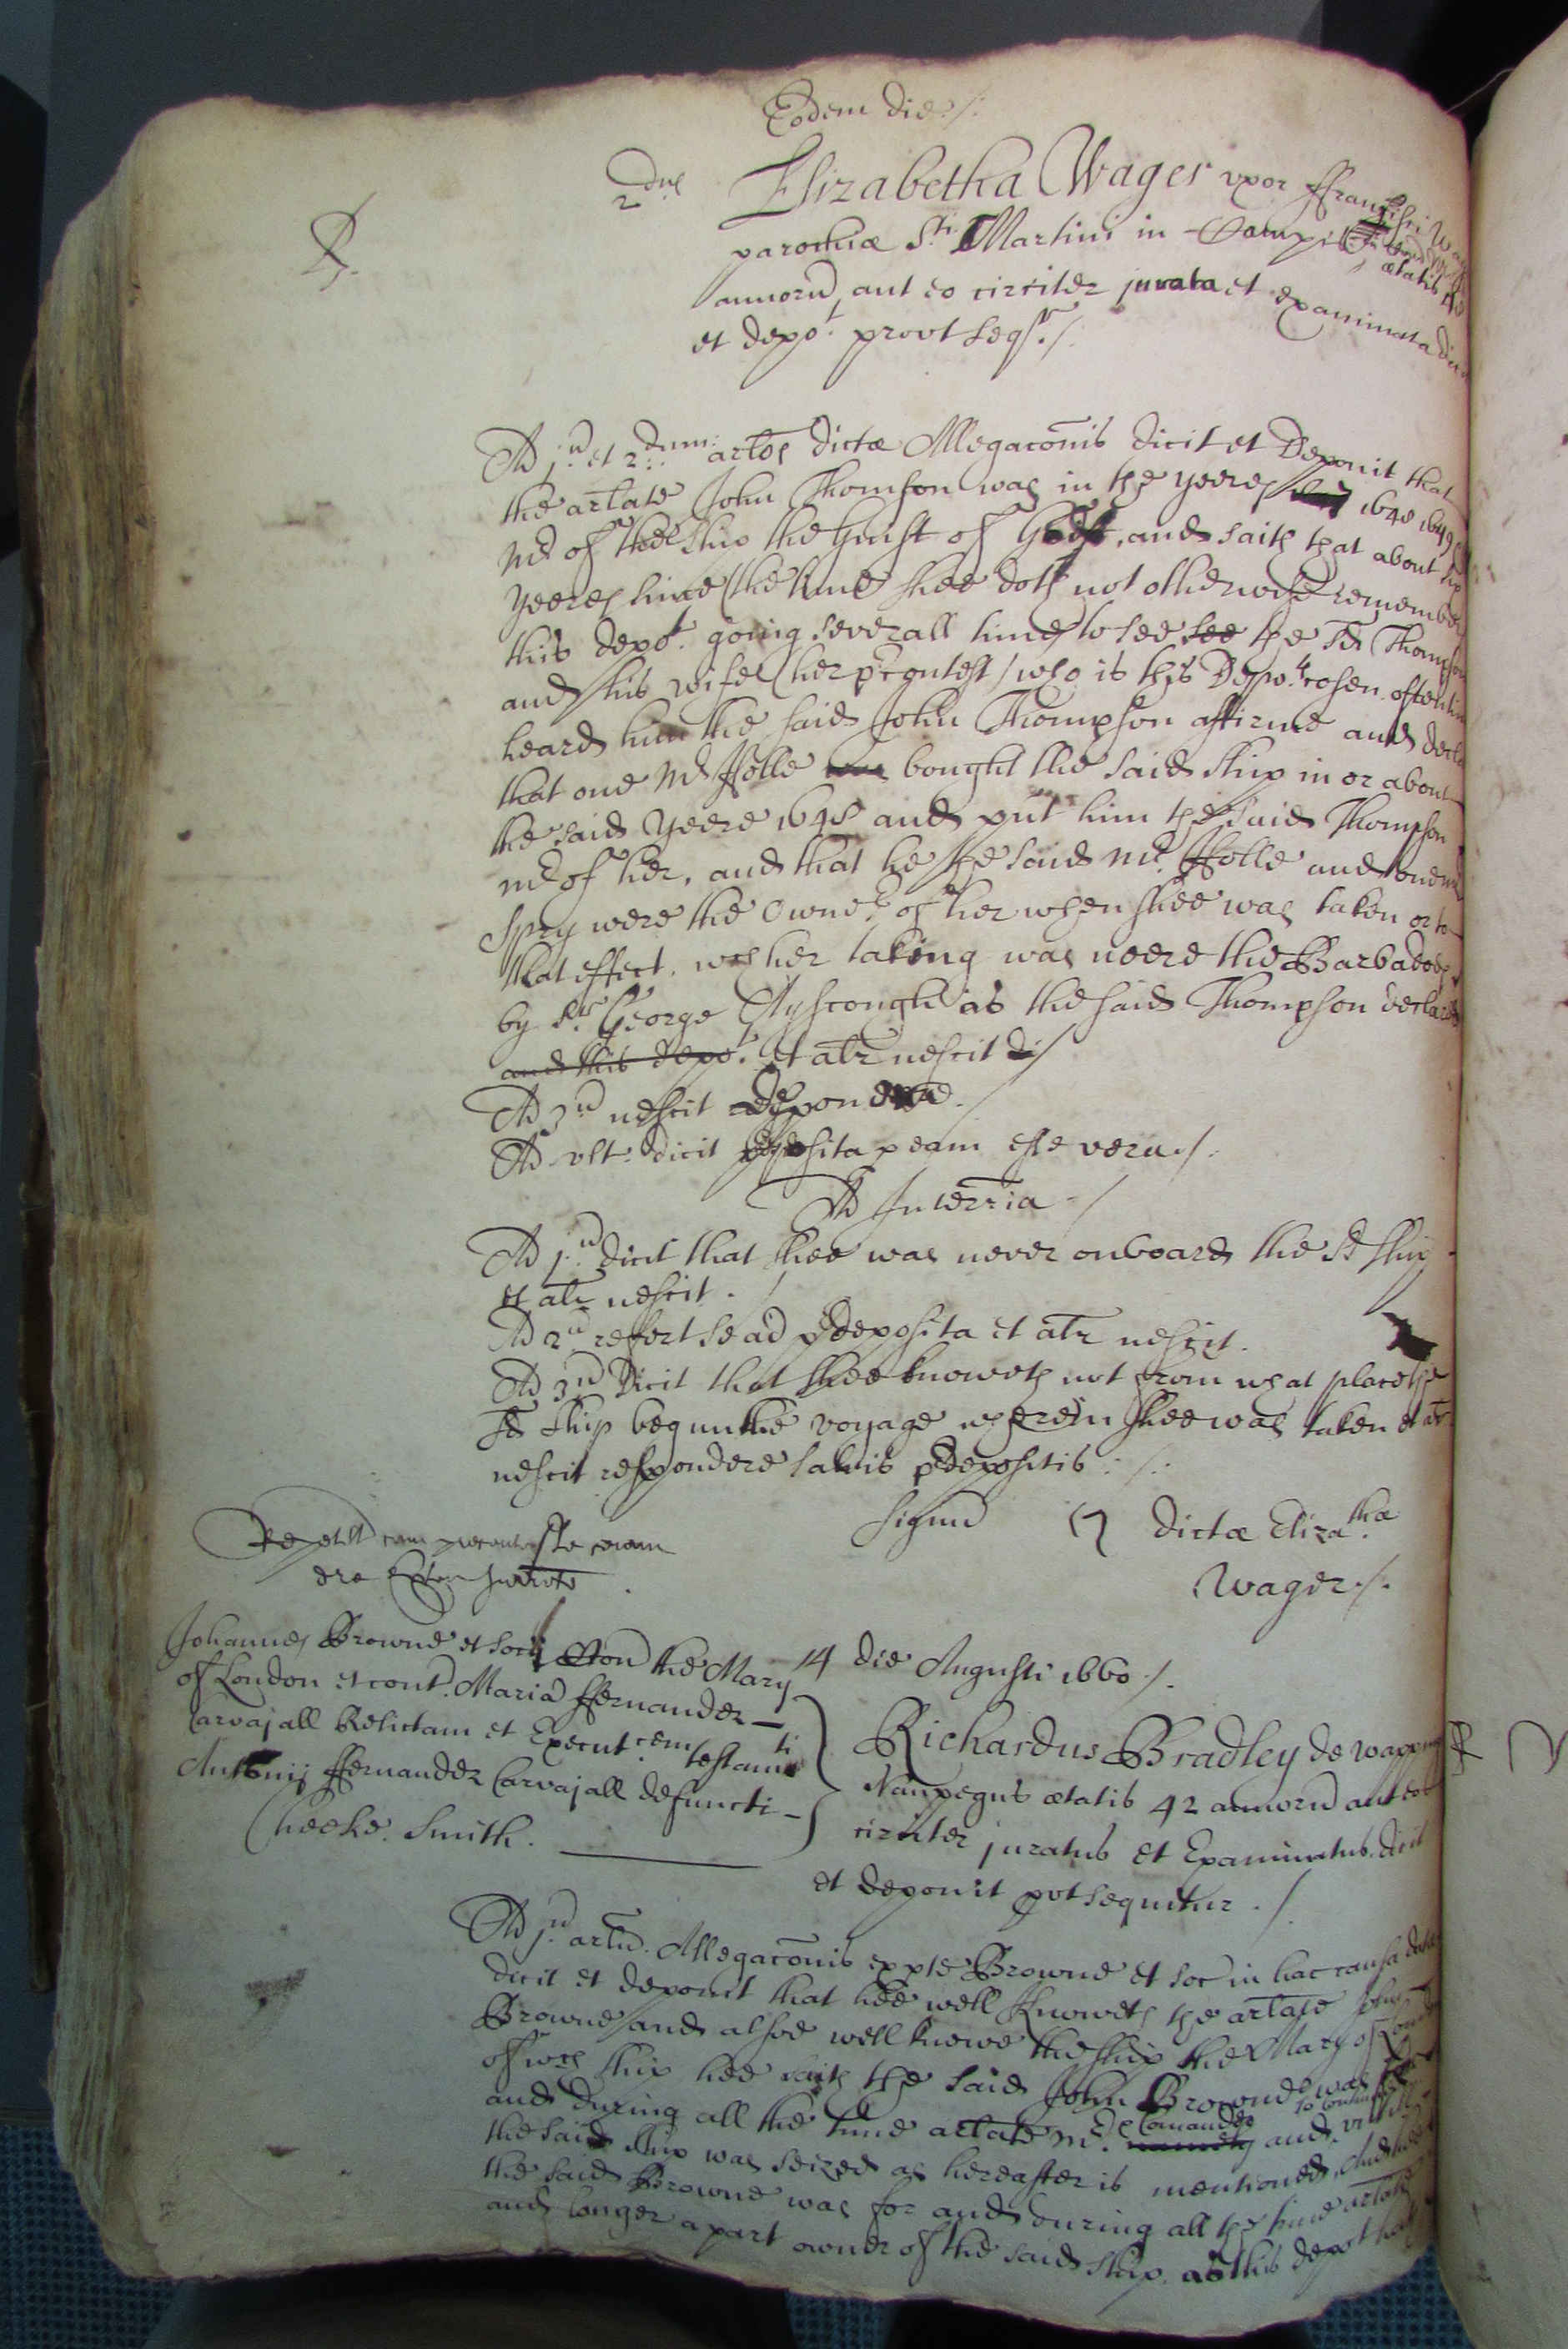 Eodem die ./.
2dus
Elizabetha Wager uxor ffrancisci Wag
parochiæ Sti Martini in Campis
ætatis
annoru aut eo circiter jurata et examinata dic
et depot prout seqr./.
R.
Ad ju et 2dum artos dictæ Allegaconis dicit et Deponit that
the arlate John Thomson was in the yeeres 1648 1649
Mr of the ship the Gust of, and saith that about
yeeres since (the time shee doth not otherwise remember
this depot going severall times to see see the sd Thompson
and his wife (her precontest) who is this Depots cosen often tim
heard him the said John Thompson affirme and decla
that one Mr ffolle was bought the said ship in or about
the said yeere 1648 and put him the said Thompson
mr of her, and that he the said Mr. ffolle and one
Spry were the Owners of her when shee was taken or to
that effect, wch her taking was neere the Barbadoes
by Sr George Ayscough as the said Thompson declared
and this depot. Et alr nescit ./
Ad 3u nescit deponere./
Ad ult. dicit deposita p eam esse vera./.
Ad Interria ./
Ad ju dicit that shee was never onboard the sd ship
et alr nescit ./
Ad 2u refert se ad pdeposita et alr nescit.
Ad 3u Dicit that shee knoweth not from what place the
sd ship begun the voyage wherein shee was taken et alr
nescit respondere salvis pdepositis : /:
signu dictæ Elizathæ
Wager./.
Repetit cum preconteste coram
Johannes Browne et socij con the Mary
of London et cont. Maria ffernandez
Carvajall Relictam et Executcem testamti
Antonij ffernandez Carvajall defuncti
Cheeke. Smith.
14 die Augusti 1660 ./.
Richardus Bradley de wapping
Naupegus ætatis 42 annoru aut eo
circiter juratus et Examinatus dicit
et deponit pvt sequitur ./.
Ad ju artlu Allegaconis ex pte Browne et soc in hac causa dat
dicit et deponit that hee well knoweth the arlate John
Browne and alsoe well knowe the ship the Mary of London
of wch ship hee saith the said John Browne was
and during all the time arlate mr. namely Comander and so continued untill
the said ship was seized as hereafter is mentioned, And
the said Browne was for and during all the time arlate
and longer a part owner of the said ship, as this depot hath